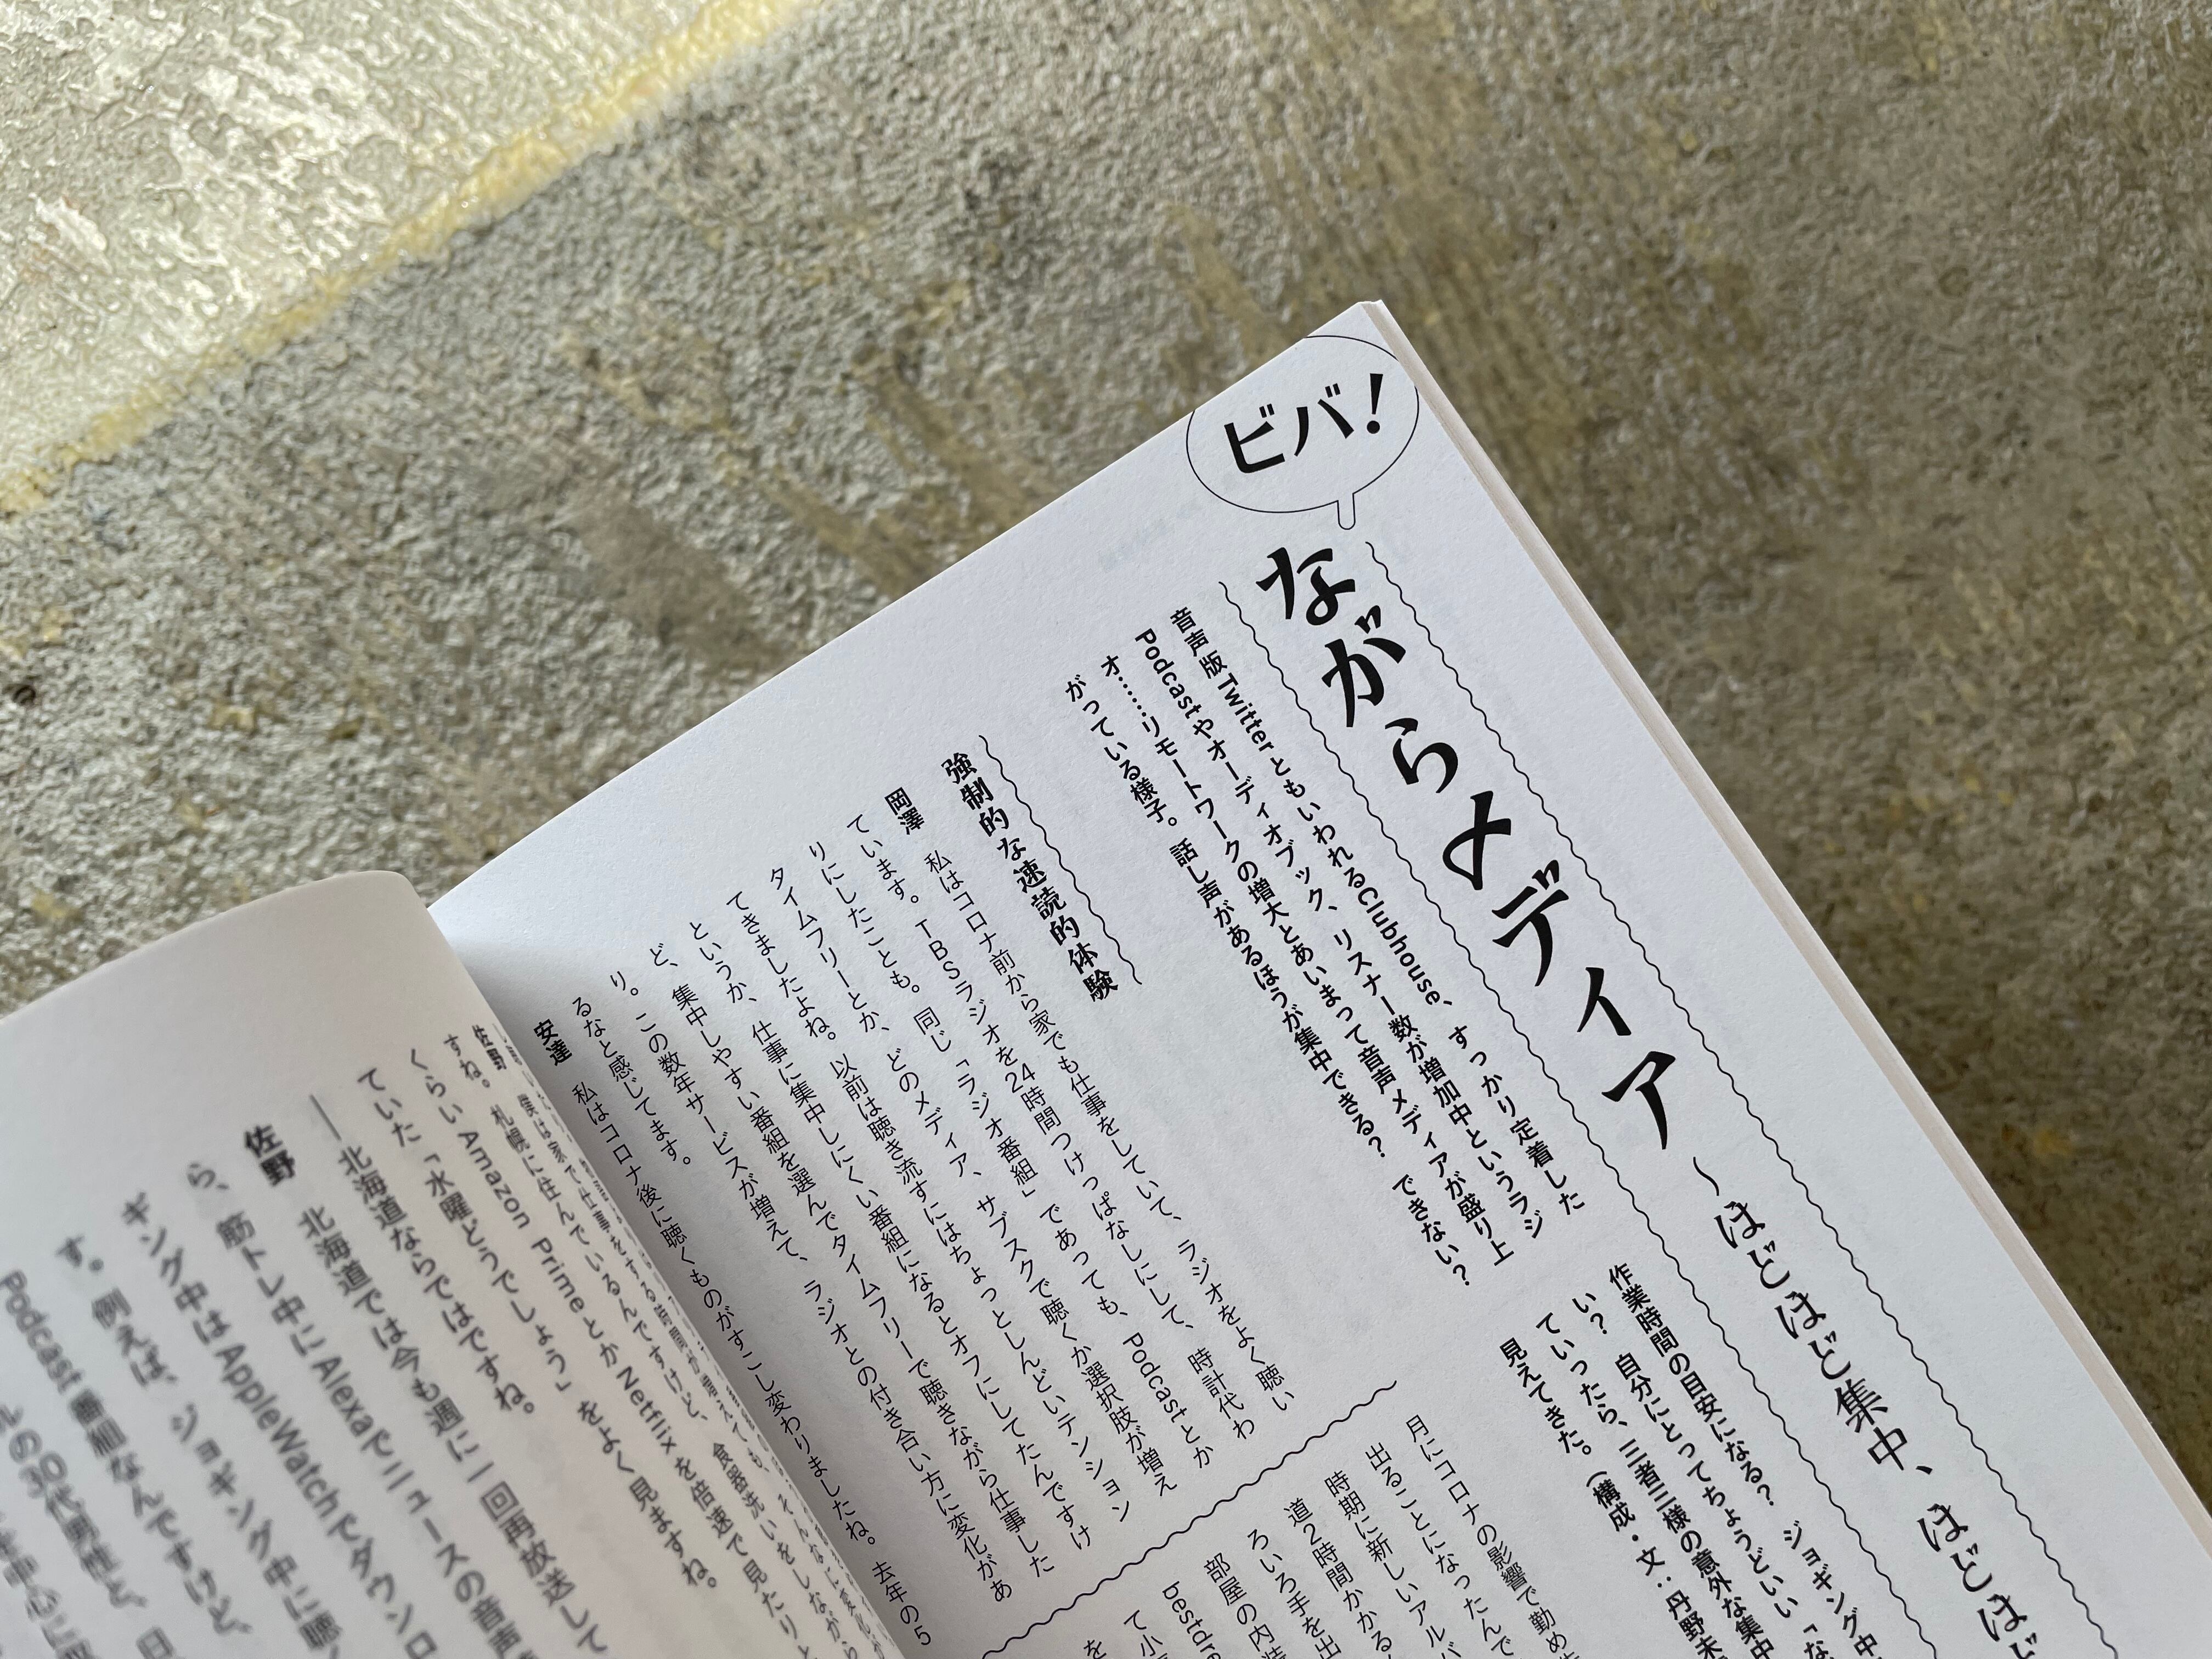 ビバ!
ながらメディア
〜ほどほど集中、ほどほど
音声版TwitterともいわれるClubhouse、すっかり定着した
Podcastやオーディオブック、リスナー数が増加中というラジ
オ……リモートワークの増大とあいまって音声メディアが盛り上
がっている様子。話し声があるほうが集中できる? できない?
作業時間の目安になる? ジョギング中
い? 自分にとってちょうどいい「な
ていったら、三者三様の意外な集中
見えてきた。(構成・文:丹野未
強制的な速読的体験
岡澤 私はコロナ前から家でも仕事をしていて、ラジオをよく聴い
ています。TBSラジオを24時間つけっぱなしにして、時計代わ
りにしたことも。同じ「ラジオ番組」であっても、Podcastとか
タイムフリーとか、どのメディア、サブスクで聴くか選択肢が増え
てきましたよね。以前は聴き流すにはちょっとしんどいテンション
というか、仕事に集中しにくい番組になるとオフにしてたんですけ
ど、集中しやすい番組を選んでタイムフリーで聴きながら仕事した
り。この数年サービスが増えて、ラジオとの付き合い方に変化があ
るなと感じてます。
安達 私はコロナ後に聴くものがすこし変わりましたね。去年の5
月にコロナの影響で勤め
出ることになったんで
時期に新しいアルバ
道2時間かかる
ろいろ手を出
部屋の内装
bestdre
て小
を
佐野 僕は家で仕事をする時間が増えても、そんなに変
すね。札幌に住んでいるんですけど、食器洗いをしながら
くらい Amazon Primeとか Netflixを倍速で見たりと
ていた「水曜どうでしょう」をよく見ますね。
――北海道ならではですね。
佐野 北海道では今も週に一回再放送して
ら、筋トレ中に Alexaでニュースの音声
ギング中は AppleWatchでダウンロ
す。例えば、ジョギング中に聴
Podcast番組なんですけど、
ルの30代男性と、日
を中心に